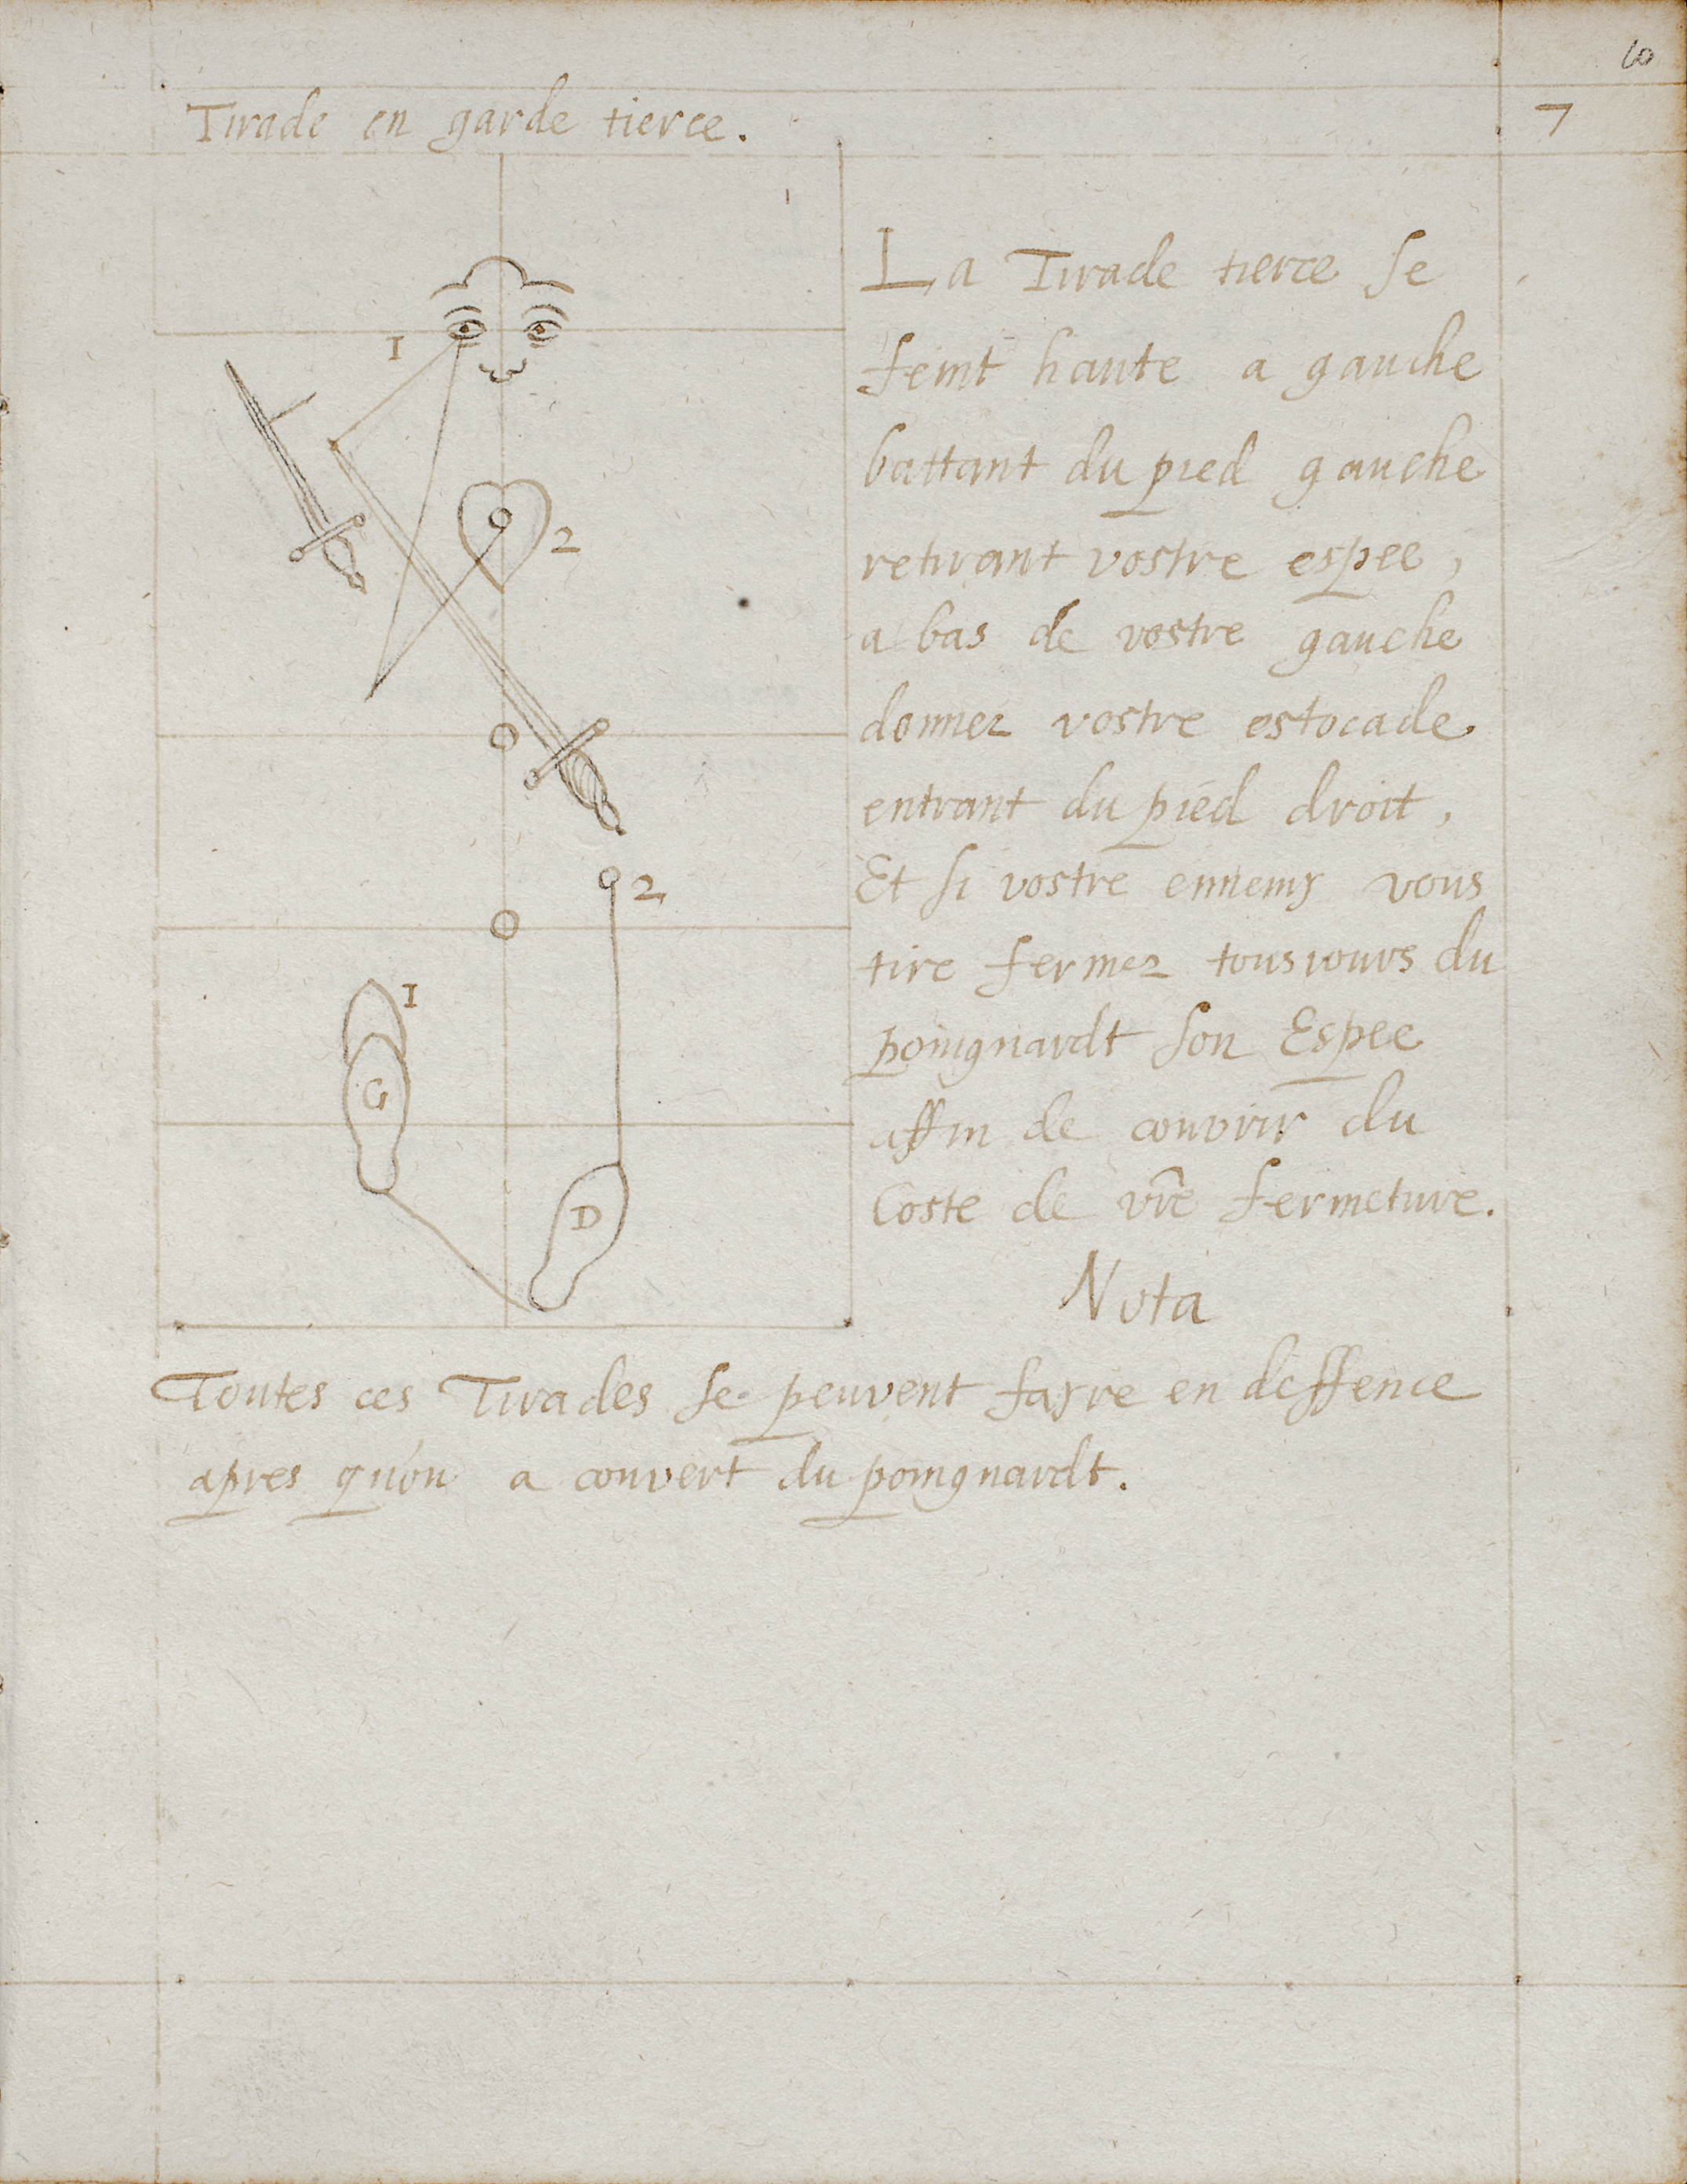 10
Tirade en garde tierce.
7
1
2
2
1
G
D
La Tirade tierce se
feint haute a gauche
battant du pied gauche
retirant vostre espee,
a bas de vostre gauche
donnez vostre estocade
entrant du pied droit,
Et si vostre ennemy vous
tire fermez tousiours du
poingnardt son Espee
affin de couvrir du
Coste de vr̃e fermeture.
Nota
Toutes ces Tirades se peuvent fayre en deffence
apres qu'on a couvert du poingnardt.